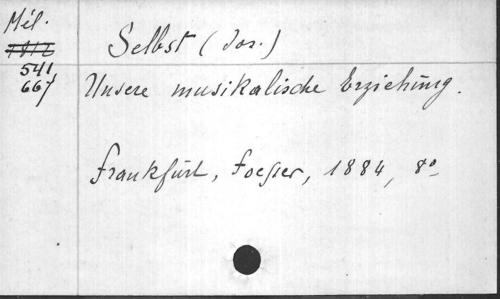 Mél.
541
667
Selbst (Jos.)
Unsere musikalische Erziehung.
Frankfurt, Foesser, 1884, 8°